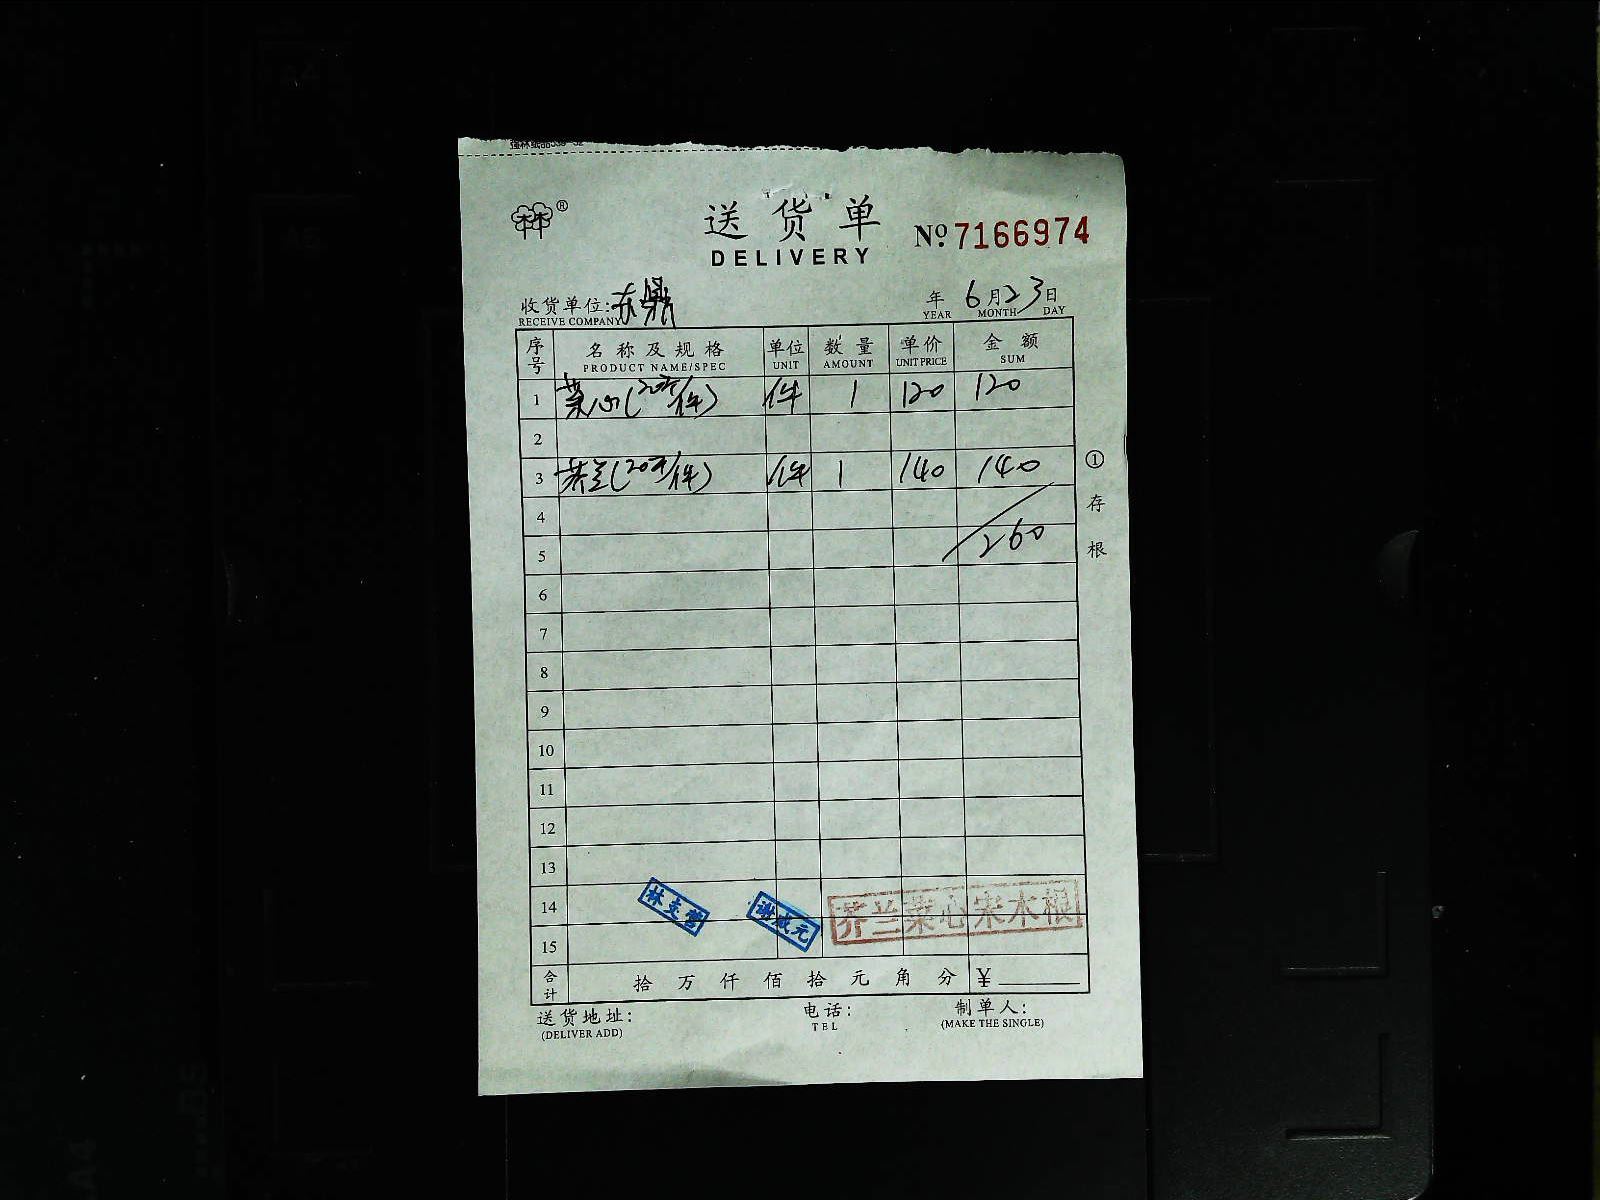 送货单
DELIVERY
№ 7166974
收货单位:东鼎
RECEIVE COMPANY
年 6月23日
YEAR MONTH DAY
序号 名称及规格 单位 数量 单价 金额
PRODUCT NAME/SPEC UNIT AMOUNT UNIT PRICE SUM
1 菜心(20斤/件) 件 1 120 120
2
3 芥兰(20斤/件) 件 1 140 140
4
5 260
6
7
8
9
10
11
12
13
14
15
林支营
谢成元
芥兰菜心宋木根
合计 拾万仟佰拾元角分 ¥
送货地址: 电话: 制单人:
(DELIVER ADD) TEL (MAKE THE SINGLE)
①存根